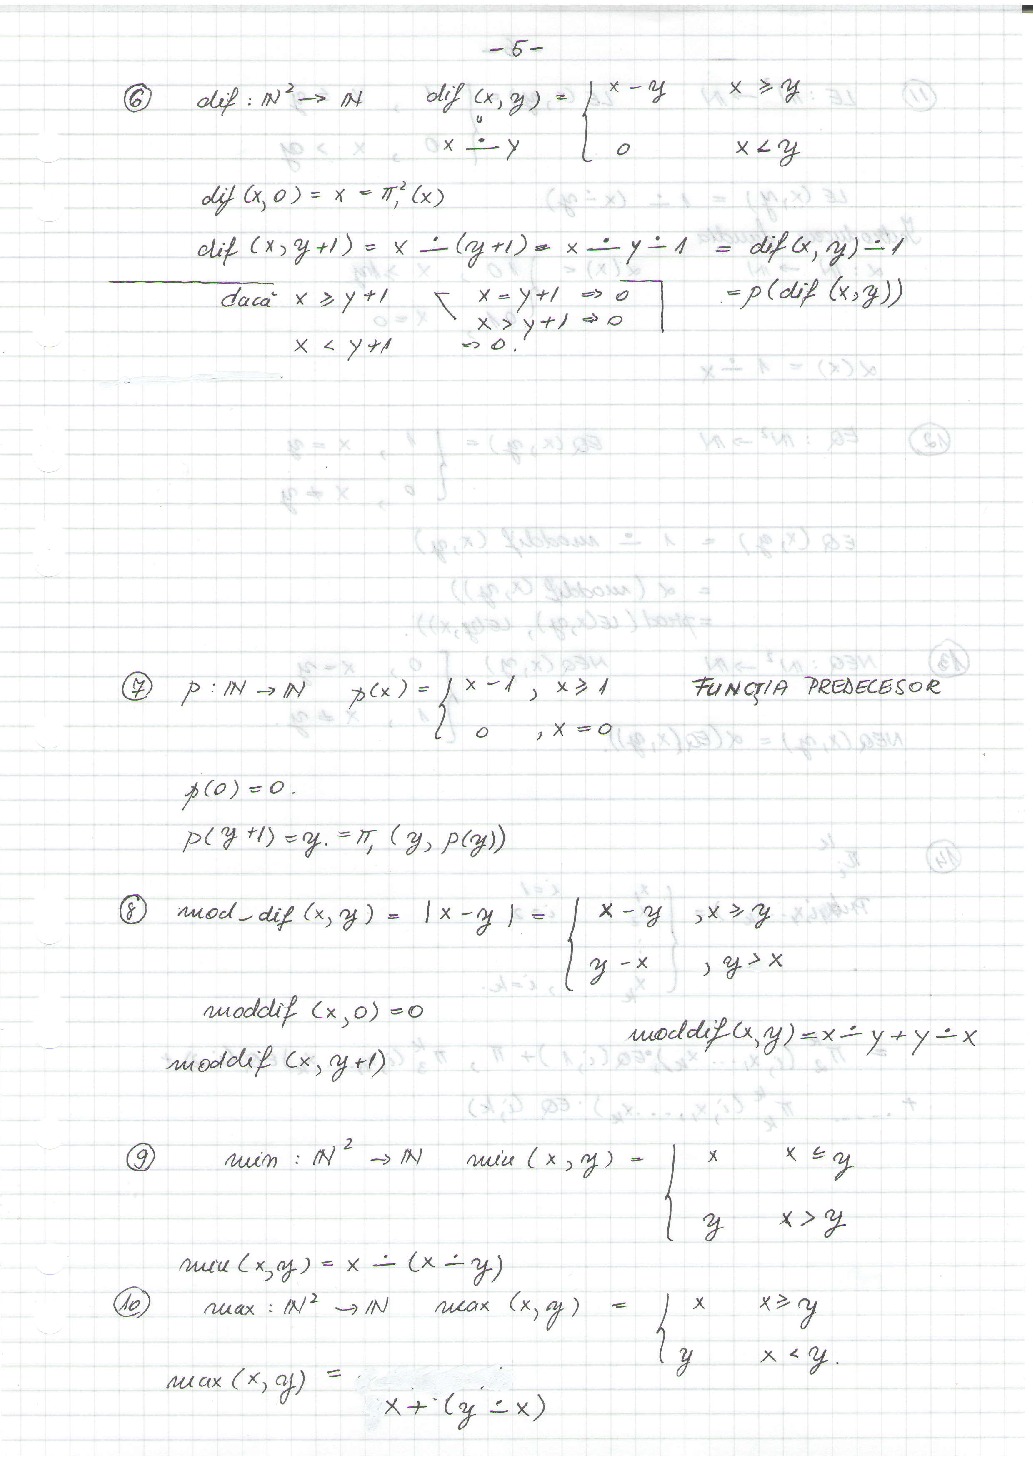 -5-
⑥ dif : ℕ² → ℕ dif (x, y) = { x - y x ⩾ y
x ∸ y 0 x < y
dif (x, 0) = x = π₁² (x)
dif (x, y+1) = x ∸ (y+1) = x ∸ y ∸ 1 = dif(x, y) ∸ 1
dacă x ⩾ y+1 x = y+1 ⇒ 0 = p(dif (x, y))
x > y+1 ⇒ 0
x < y+1 ⇒ 0.
⑦ p : ℕ → ℕ p(x) = { x - 1 , x ⩾ 1 FUNCȚIA PREDECESOR
0 , x = 0
p(0) = 0.
p(y+1) = y. = π₁ (y, p(y))
⑧ mod_dif (x, y) = |x - y| = { x - y , x ⩾ y
y - x , y > x
moddif (x, 0) = 0
moddif(x, y) = x ∸ y + y ∸ x
moddif (x, y+1)
⑨ min : ℕ² → ℕ min (x, y) = { x x ≤ y
y x > y
min (x, y) = x ∸ (x ∸ y)
⑩ max : ℕ² → ℕ max (x, y) = { x x ⩾ y
y x < y.
max (x, y) =
x + (y ∸ x)